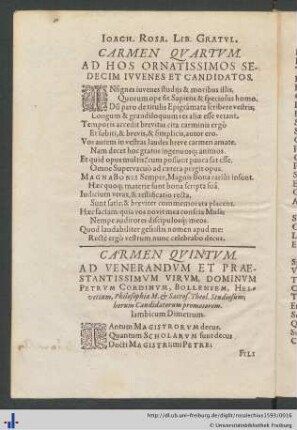 IOACH. ROSÆ. LIB. GRATVL.
CARMEN QVARTVM.
AD HOS ORNATISSIMOS SE-
DECIM IVVENES ET CANDIDATOS.
INsignes iuvenes studijs & moribus illis,
Quorum ope fit Sapiens & speciosus homo.
Dū puro de titulis Epigrāmata scribere vestris,
Longum & grandiloquum res aliæ esse vetant.
Temporis accedit brevitas: ita carminis ergò
Et subiti, & brevis, & simplicis, autor ero.
Vos autem in vestras laudes breve carmen amate.
Nam decet hoc gratos ingenuosq; animos.
Et quid opus multis: cum possunt pauca sat esse.
Omne Supervacuo ad cætera pergit opus.
MAGNA BONIS semper, Magnis bona
Hæc quoq; materiæ sunt bona scripta suā.
Iudicium verax, & recta,
Sunt satis, & breviter commemorata placent.
Hæc factam quia vos novit mea
Nempe auditores discipulosq; meos.
Quod laudabiliter nomen apud me:
Rectè ergò vestrum nunc celebratio decus.
CARMEN QVINTVM.
AD VENERANDVM ET PRÆ-
STANTISSIMVM VIRVM, DOMINVM
PETRVM CORDINVM, BOLLENSEM, HEL-
vetium, Philosophiæ M. & Sacros. Theol. Studiosum:
horum Candidatorum promotorem.
Iambicum Dimetrum.
TAntum MAGISTRORVM decus,
Quantum SCHOLARVM sunt decus
Docti MAGISTRI MI PETRE:
FILI
http://dl.ub.uni-freiburg.de/diglit/rosalechius1593/0016
© Universitätsbibliothek Freiburg